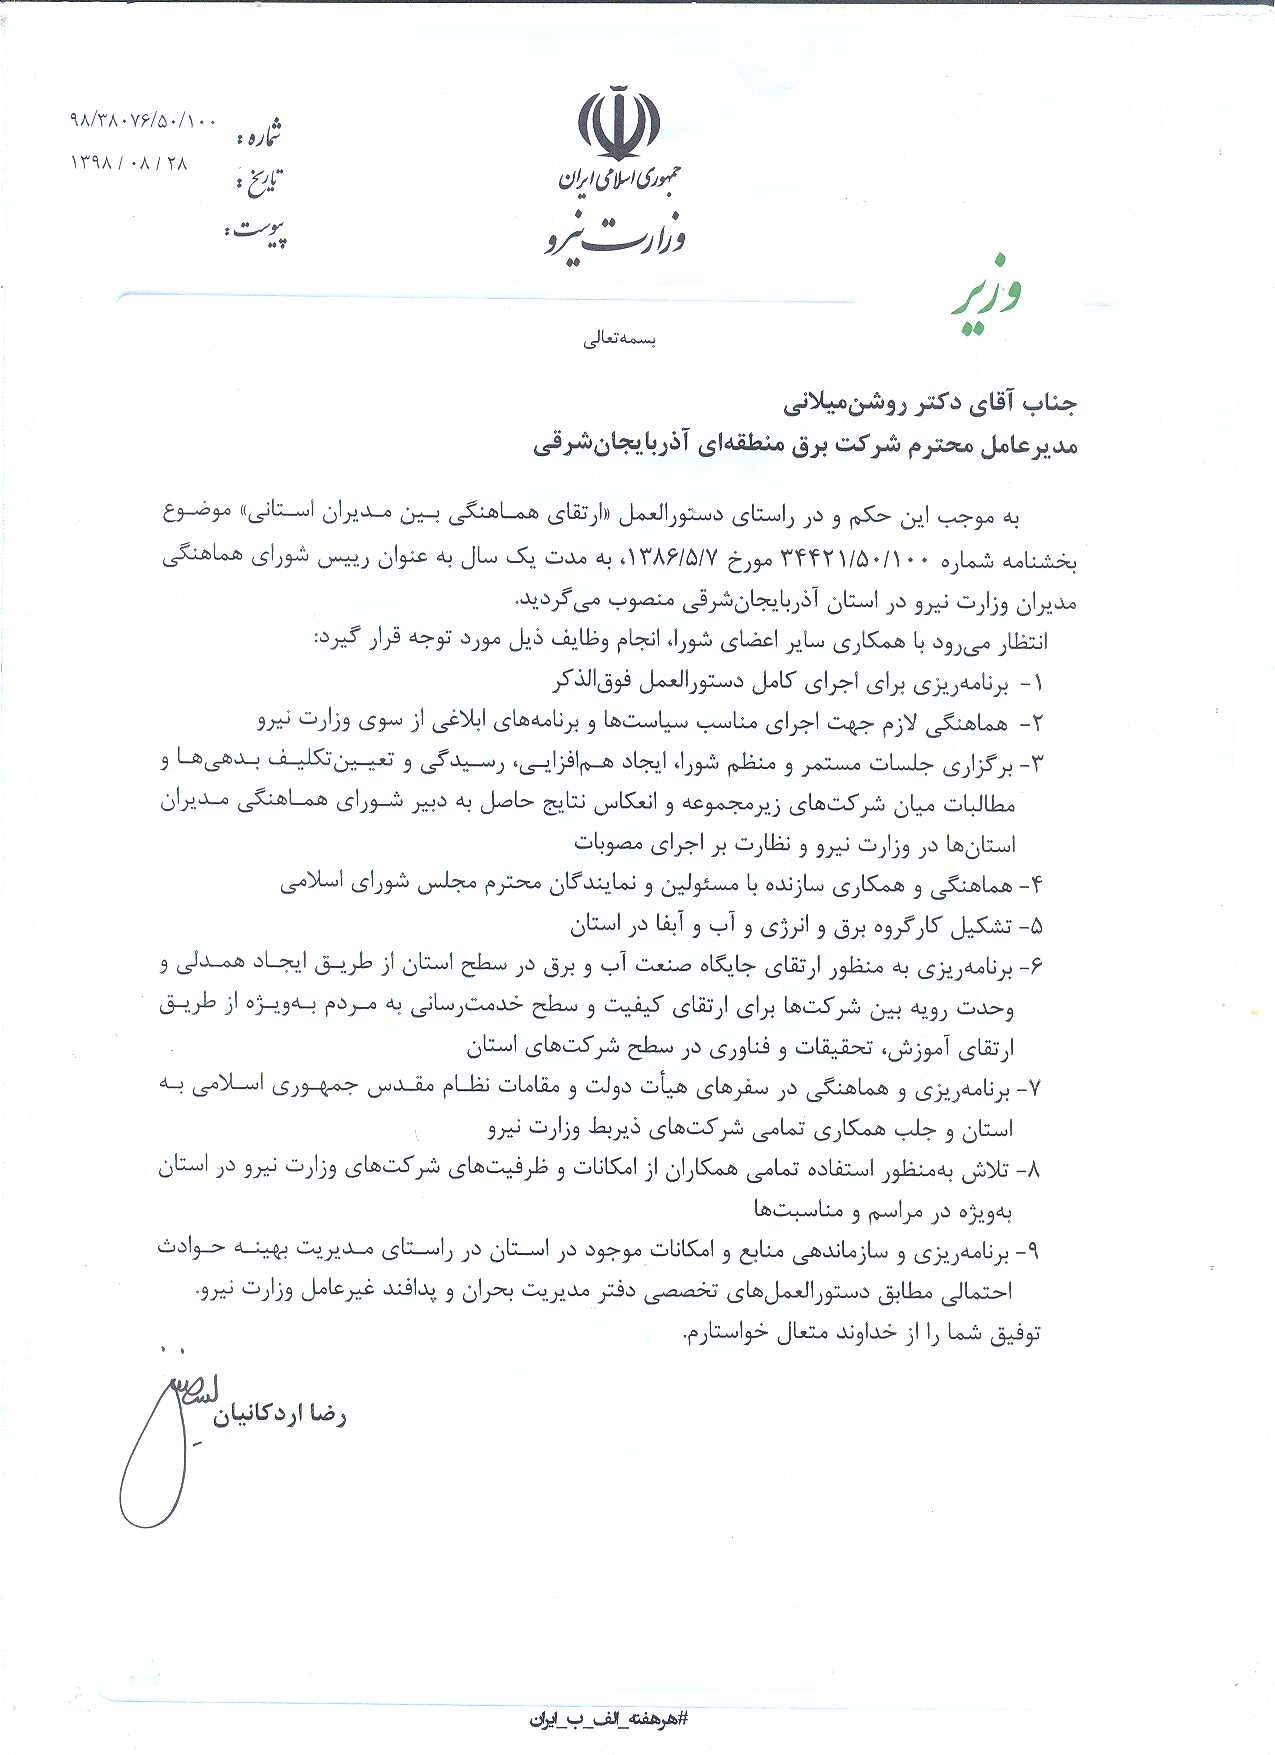 جمهوری اسلامی ایران
وزارت نیرو
شماره : ۹۸/۳۸۰۷۶/۵۰/۱۰۰
تاریخ : ۱۳۹۸ / ۰۸ / ۲۸
پیوست :
وزیر
بسمه‌تعالی
جناب آقای دکتر روشن‌میلانی
مدیرعامل محترم شرکت برق منطقه‌ای آذربایجان‌شرقی
به موجب این حکم و در راستای دستورالعمل «ارتقای هماهنگی بین مدیران استانی» موضوع
بخشنامه شماره ۳۴۴۲۱/۵۰/۱۰۰ مورخ ۱۳۸۶/۵/۷، به مدت یک سال به عنوان رییس شورای هماهنگی
مدیران وزارت نیرو در استان آذربایجان‌شرقی منصوب می‌گردید.
انتظار می‌رود با همکاری سایر اعضای شورا، انجام وظایف ذیل مورد توجه قرار گیرد:
۱- برنامه‌ریزی برای اجرای کامل دستورالعمل فوق‌الذکر
۲- هماهنگی لازم جهت اجرای مناسب سیاست‌ها و برنامه‌های ابلاغی از سوی وزارت نیرو
۳- برگزاری جلسات مستمر و منظم شورا، ایجاد هم‌افزایی، رسیدگی و تعیین‌تکلیف بدهی‌ها و
مطالبات میان شرکت‌های زیرمجموعه و انعکاس نتایج حاصل به دبیر شورای هماهنگی مدیران
استان‌ها در وزارت نیرو و نظارت بر اجرای مصوبات
۴- هماهنگی و همکاری سازنده با مسئولین و نمایندگان محترم مجلس شورای اسلامی
۵- تشکیل کارگروه برق و انرژی و آب و آبفا در استان
۶- برنامه‌ریزی به منظور ارتقای جایگاه صنعت آب و برق در سطح استان از طریق ایجاد همدلی و
وحدت رویه بین شرکت‌ها برای ارتقای کیفیت و سطح خدمت‌رسانی به مردم به‌ویژه از طریق
ارتقای آموزش، تحقیقات و فناوری در سطح شرکت‌های استان
۷- برنامه‌ریزی و هماهنگی در سفرهای هیأت دولت و مقامات نظام مقدس جمهوری اسلامی به
استان و جلب همکاری تمامی شرکت‌های ذیربط وزارت نیرو
۸- تلاش به‌منظور استفاده تمامی همکاران از امکانات و ظرفیت‌های شرکت‌های وزارت نیرو در استان
به‌ویژه در مراسم و مناسبت‌ها
۹- برنامه‌ریزی و سازماندهی منابع و امکانات موجود در استان در راستای مدیریت بهینه حوادث
احتمالی مطابق دستورالعمل‌های تخصصی دفتر مدیریت بحران و پدافند غیرعامل وزارت نیرو.
توفیق شما را از خداوند متعال خواستارم.
رضا اردکانیان
#هرهفته_الف_ب_ایران